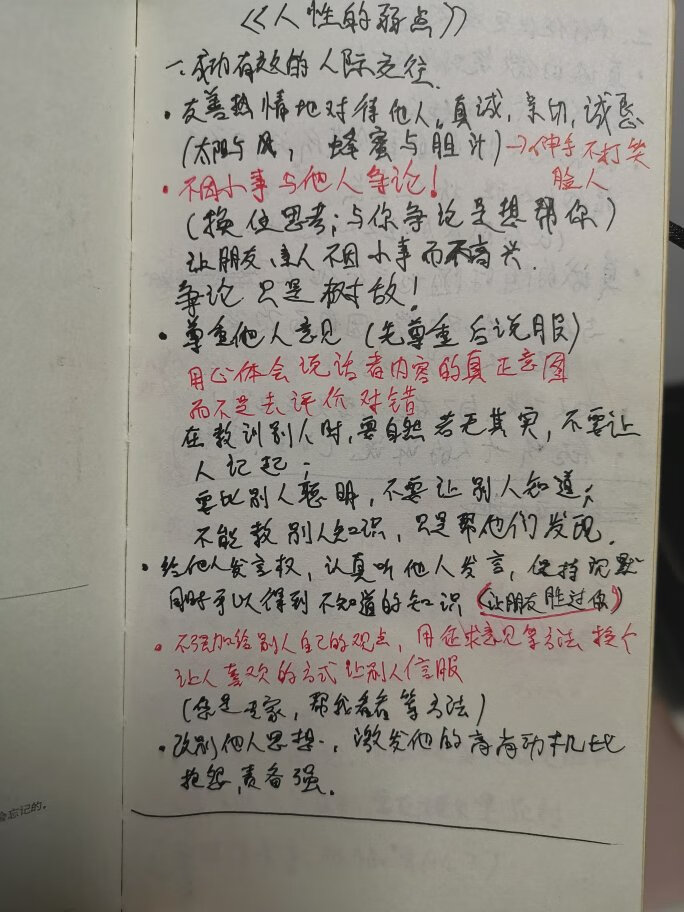 《人性的弱点》
一、成功有效的人际交往.
·友善热情地对待他人。真诚,亲切,诚恳
(太阳与风, 蜂蜜与胆汁)→伸手不打笑
脸人
·不因小事与他人争论!
(换位思考;与你争论是想帮你)
让朋友、亲人不因小事而不高兴.
争论只是树敌!
·尊重他人意见(先尊重后说服)
用心体会说话者内容的真正意图
而不是去评价对错
在教训别人时,要自然若无其实,不要让
人记起;
要比别人聪明,不要让别人知道;
不能教别人知识,只是帮他们发现.
·给他人发言权,认真听他人发言,保持沉默
同时可以得到不知道的知识(让朋友胜过你)
·不强加给别人自己的观点,用征求意见等方法换个
让人喜欢的方式让别人信服
(您是专家,帮我看看等方法)
·改别他人思想.,激发他的高尚动机比
抱怨,责备强.
会忘记的。